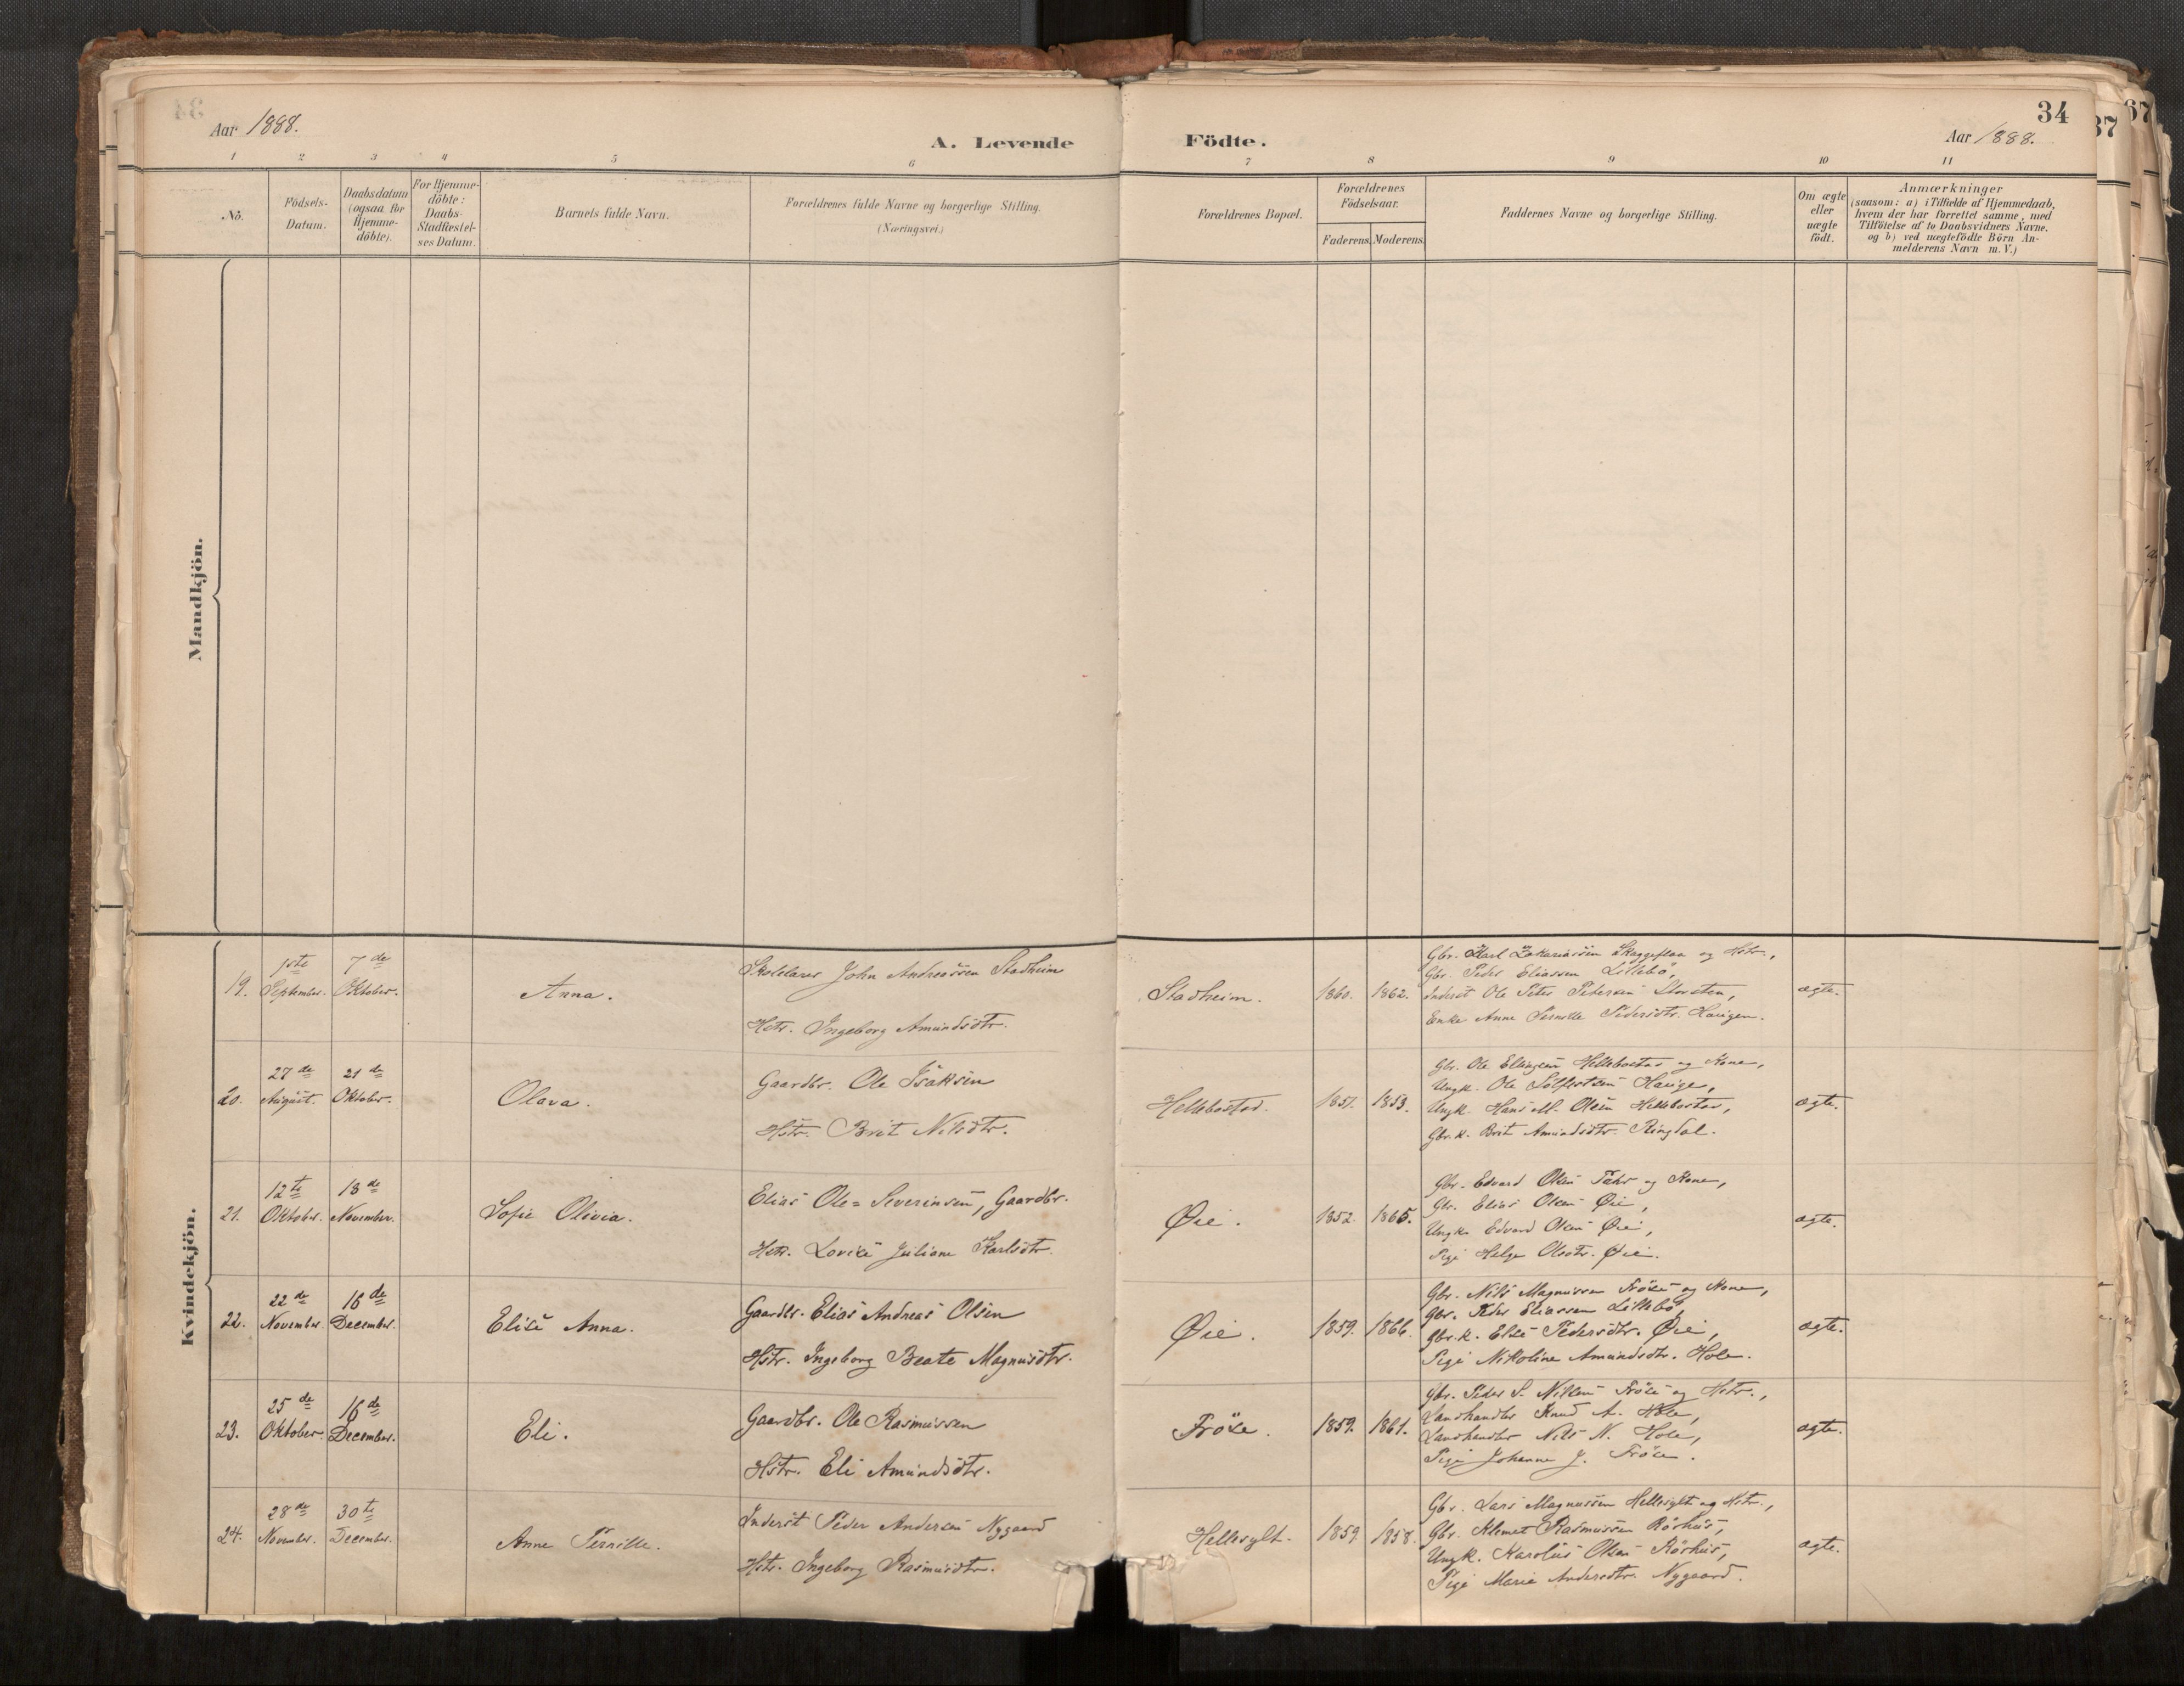 34
Aar 1888.
A. Levende Födte.
Aar 1888.
1 2 3 4 5 6 7 8 9 10 11
No.
Födsels-
Datum.
Daabsdatum
(ogsaa for
Hjemme-
döbte).
For Hjemme-
döbte:
Daabs-
Stadfæstel-
ses Datum.
Barnets fulde Navn.
Forældrenes fulde Navne og borgerlige Stilling.
(Næringsvei.)
Forældrenes Bopæl.
Forældrenes
Födselsaar.
Faderens. Moderens.
Faddernes Navne og borgerlige Stilling.
Om ægte
eller
uægte
födt.
Anmærkninger
(saasom: a) i Tilfælde af Hjemmedaab,
hvem der har forrettet samme, med
Tilföielse af to Daabsvidners Navne.
og b) ved uægtefödte Börn An-
melderens Navn m. V.)
Mandkjön.
Kvindekjön.
19.
1ste
September.
7de
Oktober.
Anna.
Skolelærer John Andreassen Stadheim
Hstr. Ingeborg Amundsdtr.
Stadheim.
1860. 1862.
Gbr. Karl Zakariassen Skaggeflaa og Hstr.,
Gbr. Peder Eliassen Lillebö,
Inderst Ole Peter Petersen
Enke Anne Pernille Pedersdtr. Haugen.
ægte.
20.
27de
August.
21de
Oktober.
Olava.
Gaardbr. Ole Isaksen
Hstr. Brit Nilsdtr.
Hellebostad.
1851. 1853.
Gbr. Ole Ellingsen Hellebostad og Kone,
Ungk. Ole Hauge,
Ungk. Hans M. Olsen Hellebostad,
Gbr.k. Brit Amundsdtr. Ringdal.
ægte.
21.
12te
Oktober.
18de
November.
Sofie Olivia.
Elias Ole-Severinsen, Gaardbr.
Hstr. Lovise Juliane Karlsdtr.
Øie.
1852. 1865.
Gbr. Edvard Olsen og Kone,
Gbr. Elias Olsen Øie,
Ungk. Edvard Olsen Øie,
Pige Helga Olsdtr. Øie.
ægte.
22.
22de
November.
16de
December.
Elise Anna.
Gaardbr. Elias Andreas Olsen
Hstr. Ingeborg Beate Magnusdtr.
Øie.
1859. 1866.
Gbr. Nils Magnussen Fröise og Kone,
Gbr. Peder Eliassen Lillebö,
Gbr.k. Else Pedersdtr. Øie,
Pige Nikoline Amundsdtr. Hole.
ægte.
23.
25de
Oktober.
16de
December.
Eli.
Gaardbr. Ole Rasmussen
Hstr. Eli Amundsdtr.
Fröise.
1859. 1861.
Gbr. Peder S. Nilsen Fröise og Hstr.,
Landhandler Knud A. Hole,
Landhandler Nils N. Hole,
Pige Johanne J. Fröise.
ægte.
24.
28de
November.
30te
December.
Anne Pernille.
Inderst Peder Andersen Nygaard
Hstr. Ingeborg Rasmusdtr.
Hellesylt.
1859 1858.
Gbr. Lars Magnussen Hellesylt og Hstr.,
Gbr. Klemet Rasmussen Rörhus,
Ungk. Karolus Olsen Rörhus,
Pige Marie Andersdtr. Nygaard.
ægte.
37
67